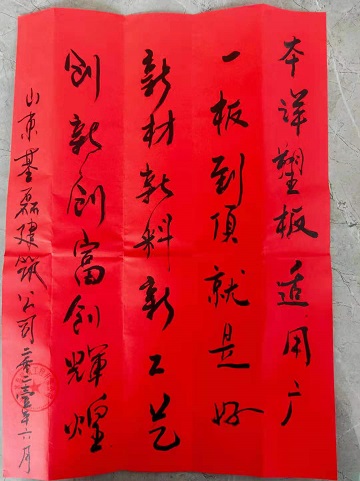 本祥塑板适用广
一板到頂就是好
新材新料新工艺
创新创富创輝煌
山东基磊建筑公司二零二三年六月